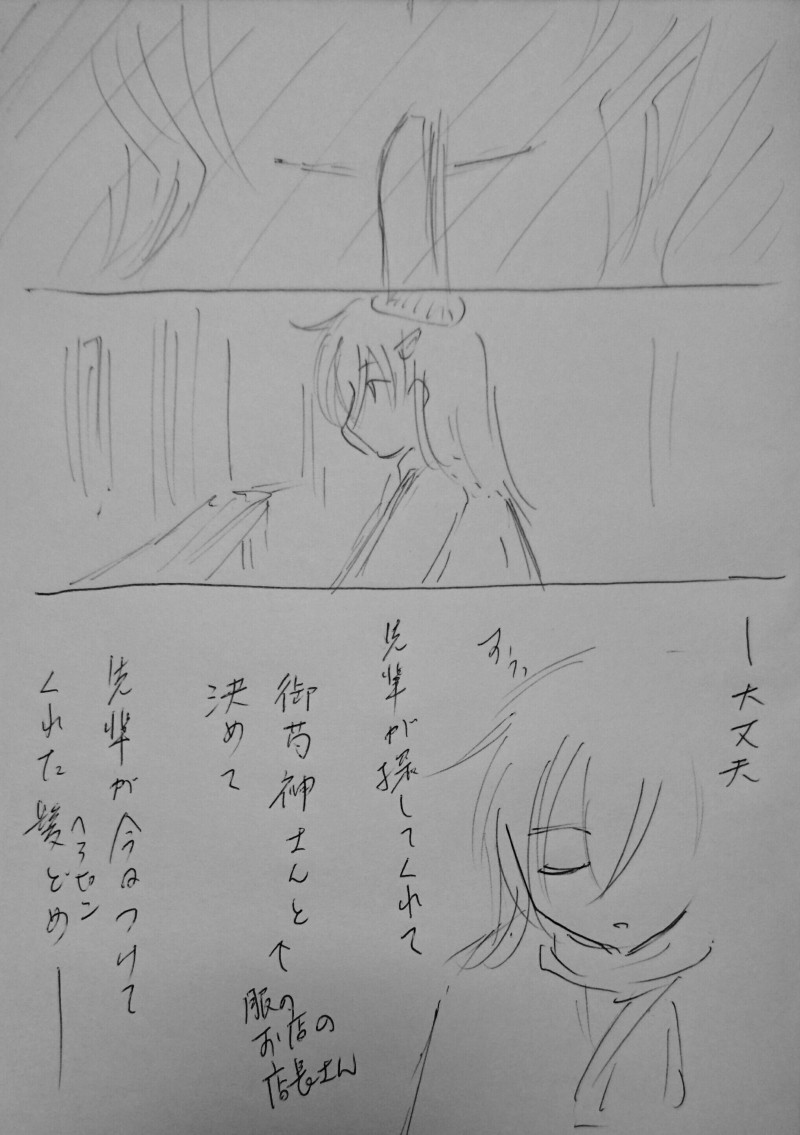 ー大丈夫
すうっ
先輩が探してくれて
御芍神さんと
↑
服の
お店の
店長さん
決めて
先輩が今日つけて
くれた髪どめ
ヘアピン